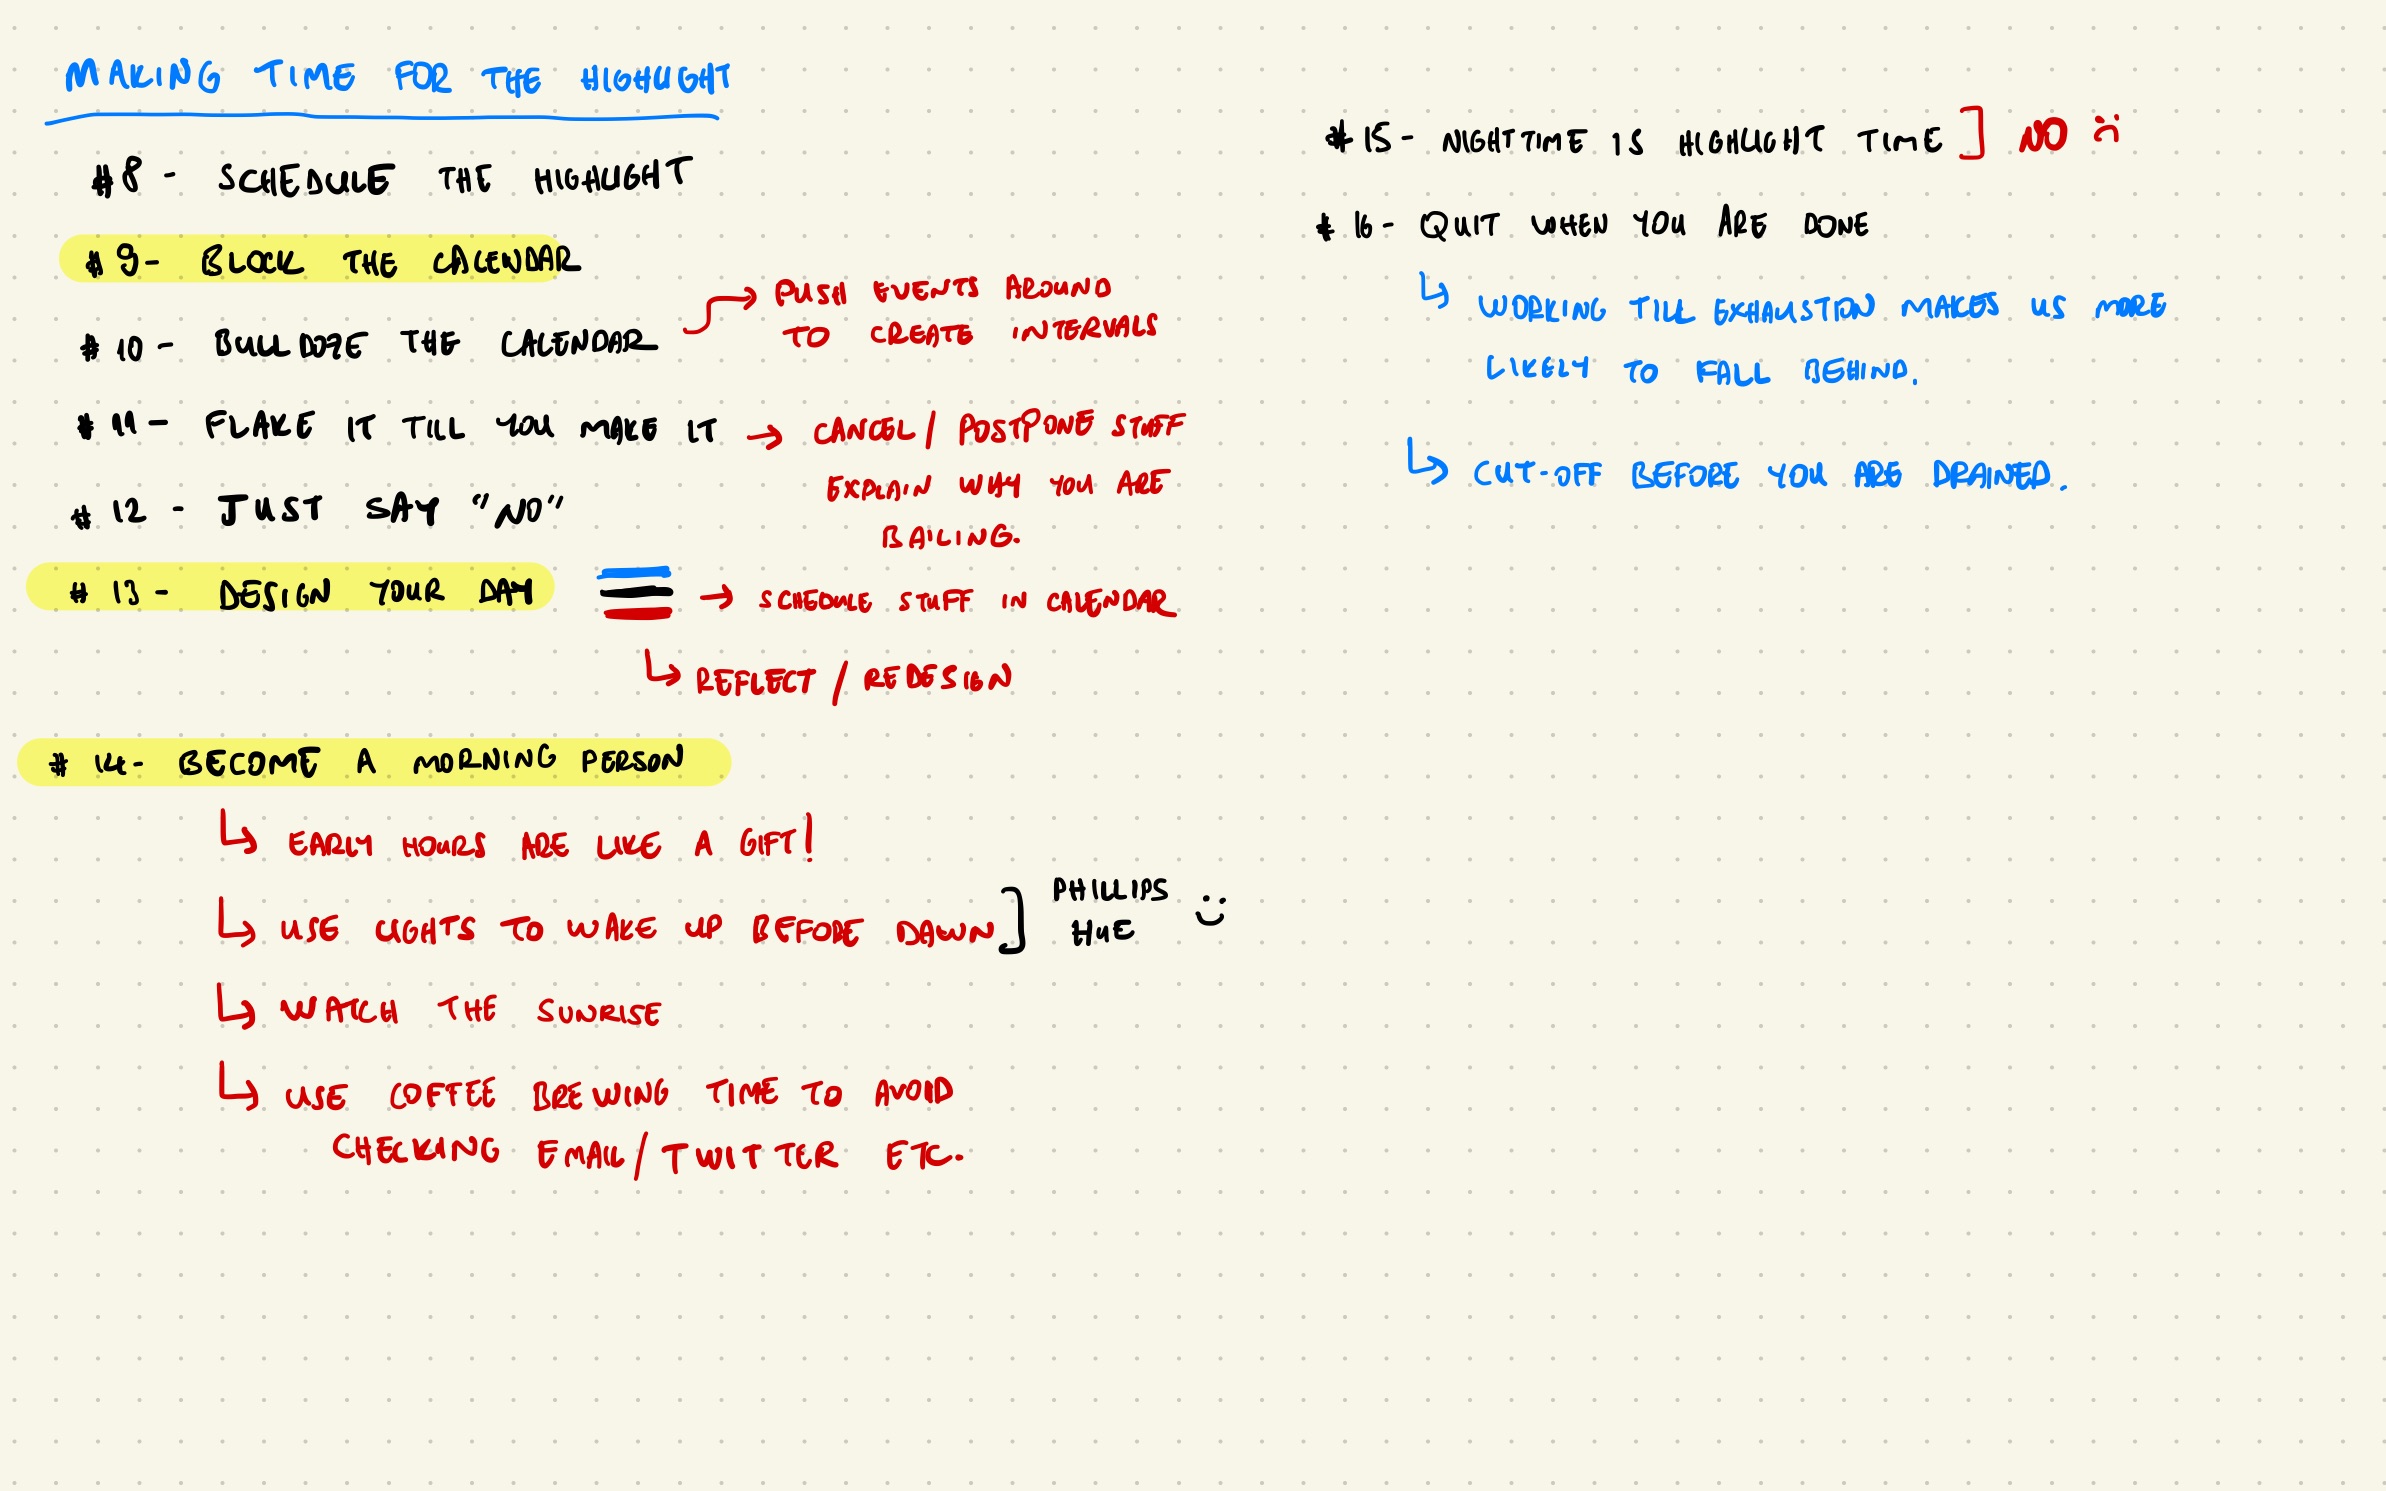 MAKING TIME FOR THE HIGHLIGHT
#8 - SCHEDULE THE HIGHLIGHT
#9- BLOCK THE CALENDAR
#10 - BULLDOZE THE CALENDAR
PUSH EVENTS AROUND
TO CREATE INTERVALS
#11 - FLAKE IT TILL YOU MAKE IT
CANCEL / POSTPONE STUFF
EXPLAIN WHY YOU ARE
BAILING.
#12 - JUST SAY "NO"
#13 - DESIGN YOUR DAY
SCHEDULE STUFF IN CALENDAR
REFLECT / REDESIGN
#14- BECOME A MORNING PERSON
EARLY HOURS ARE LIKE A GIFT!
USE LIGHTS TO WAKE UP BEFORE DAWN
PHILLIPS
HUE :)
WATCH THE SUNRISE
USE COFFEE BREWING TIME TO AVOID
CHECKING EMAIL/TWITTER ETC.
#15- NIGHTTIME IS HIGHLIGHT TIME ] NO :(
#16- QUIT WHEN YOU ARE DONE
WORKING TILL EXHAUSTION MAKES US MORE
LIKELY TO FALL BEHIND.
CUT-OFF BEFORE YOU ARE DRAINED.